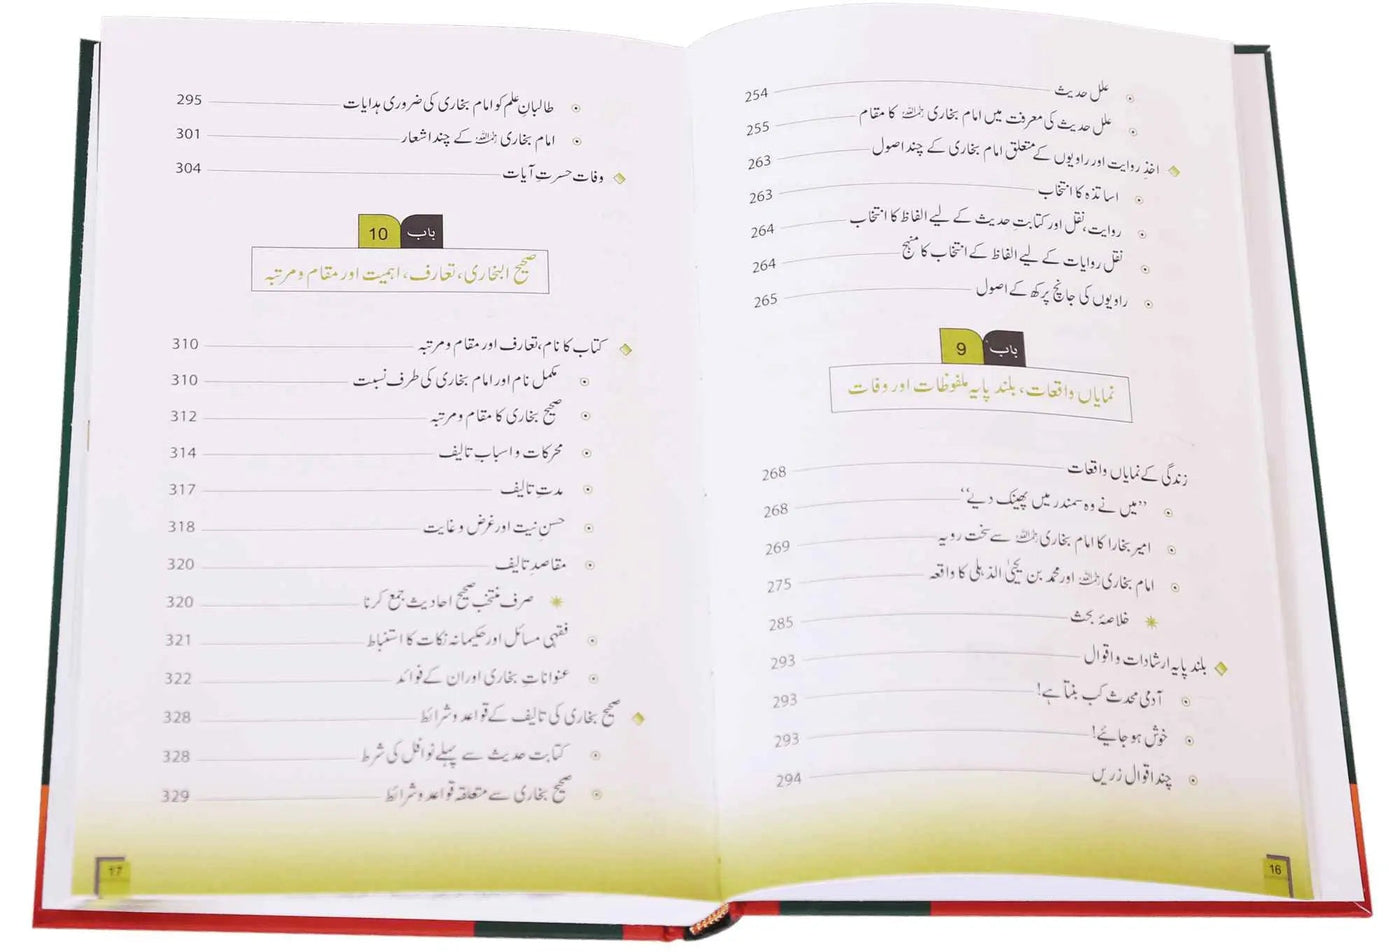 علل حدیث 254
علل حدیث کی معرفت میں امام بخاری رحمہ اللہ کا مقام 255
اخذِ روایت اور راویوں کے متعلق امام بخاری کے چند اصول 263
اساتذہ کا انتخاب 263
روایت، نقل اور کتابتِ حدیث کے لیے الفاظ کا انتخاب 264
نقل روایات کے لیے الفاظ کے انتخاب کا منہج 264
راویوں کی جانچ پرکھ کے اصول 265
باب 9
نمایاں واقعات، بلند پایہ ملفوظات اور وفات
زندگی کے نمایاں واقعات 268
’’میں نے وہ سمندر میں پھینک دیے‘‘ 268
امیر بخارا کا امام بخاری رحمہ اللہ سے سخت رویہ 269
امام بخاری رحمہ اللہ اور محمد بن یحییٰ الذہلی کا واقعہ 275
خلاصۂ بحث 285
بلند پایہ ارشادات و اقوال 293
آدمی محدث کب بنتا ہے! 293
خوش ہو جائیے! 293
چند اقوال زریں 294
16
طالبانِ علم کو امام بخاری کی ضروری ہدایات 295
امام بخاری رحمہ اللہ کے چند اشعار 301
وفات حسرتِ آیات 304
باب 10
صحیح البخاری، تعارف، اہمیت اور مقام و مرتبہ
کتاب کا نام، تعارف اور مقام و مرتبہ 310
مکمل نام اور امام بخاری کی طرف نسبت 310
صحیح بخاری کا مقام و مرتبہ 312
محرکات و اسباب تالیف 314
مدتِ تالیف 317
حسنِ نیت اور غرض و غایت 318
مقاصدِ تالیف 320
صرف منتخب صحیح احادیث جمع کرنا 320
فقہی مسائل اور حکیمانہ نکات کا استنباط 321
عنواناتِ بخاری اور ان کے فوائد 322
صحیح بخاری کی تالیف کے قواعد و شرائط 328
کتابت حدیث سے پہلے نوافل کی شرط 328
صحیح بخاری سے متعلقہ قواعد و شرائط 329
17